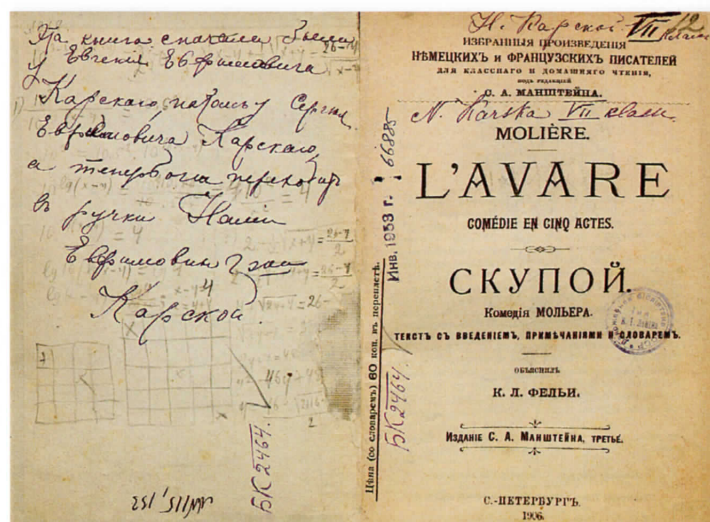 Эта книга сначала была
у Евгенія Ефимовича
Карскаго, потом у Сергея
Ефимовича Карскаго,
а теперь она переходитъ
въ ручки Наши
Ефимовны
Карской.
БК 2464.
Цѣна (со словаремъ) 60 коп. въ переплетѣ.
Инв. 1953 г. : 66885
БК 2464.
Н. Карской VII
ИЗБРАННЫЯ ПРОИЗВЕДЕНІЯ
НѢМЕЦКИХЪ и ФРАНЦУЗСКИХЪ ПИСАТЕЛЕЙ
ДЛЯ КЛАССНАГО И ДОМАШНЯГО ЧТЕНІЯ,
ПОДЪ РЕДАКЦІЕЙ
С. А. МАНШТЕЙНА.
N. Karska VII
MOLIÈRE.
L'AVARE
COMÉDIE EN CINQ ACTES.
СКУПОЙ.
Комедія МОЛЬЕРА.
ТЕКСТЪ СЪ ВВЕДЕНІЕМЪ, ПРИМѢЧАНІЯМИ И СЛОВАРЕМЪ.
ОБЪЯСНИЛЪ
К. Л. ФЕЛЬИ.
ИЗДАНІЕ С. А. МАНШТЕЙНА, ТРЕТЬЕ.
С.-ПЕТЕРБУРГЪ.
1906.